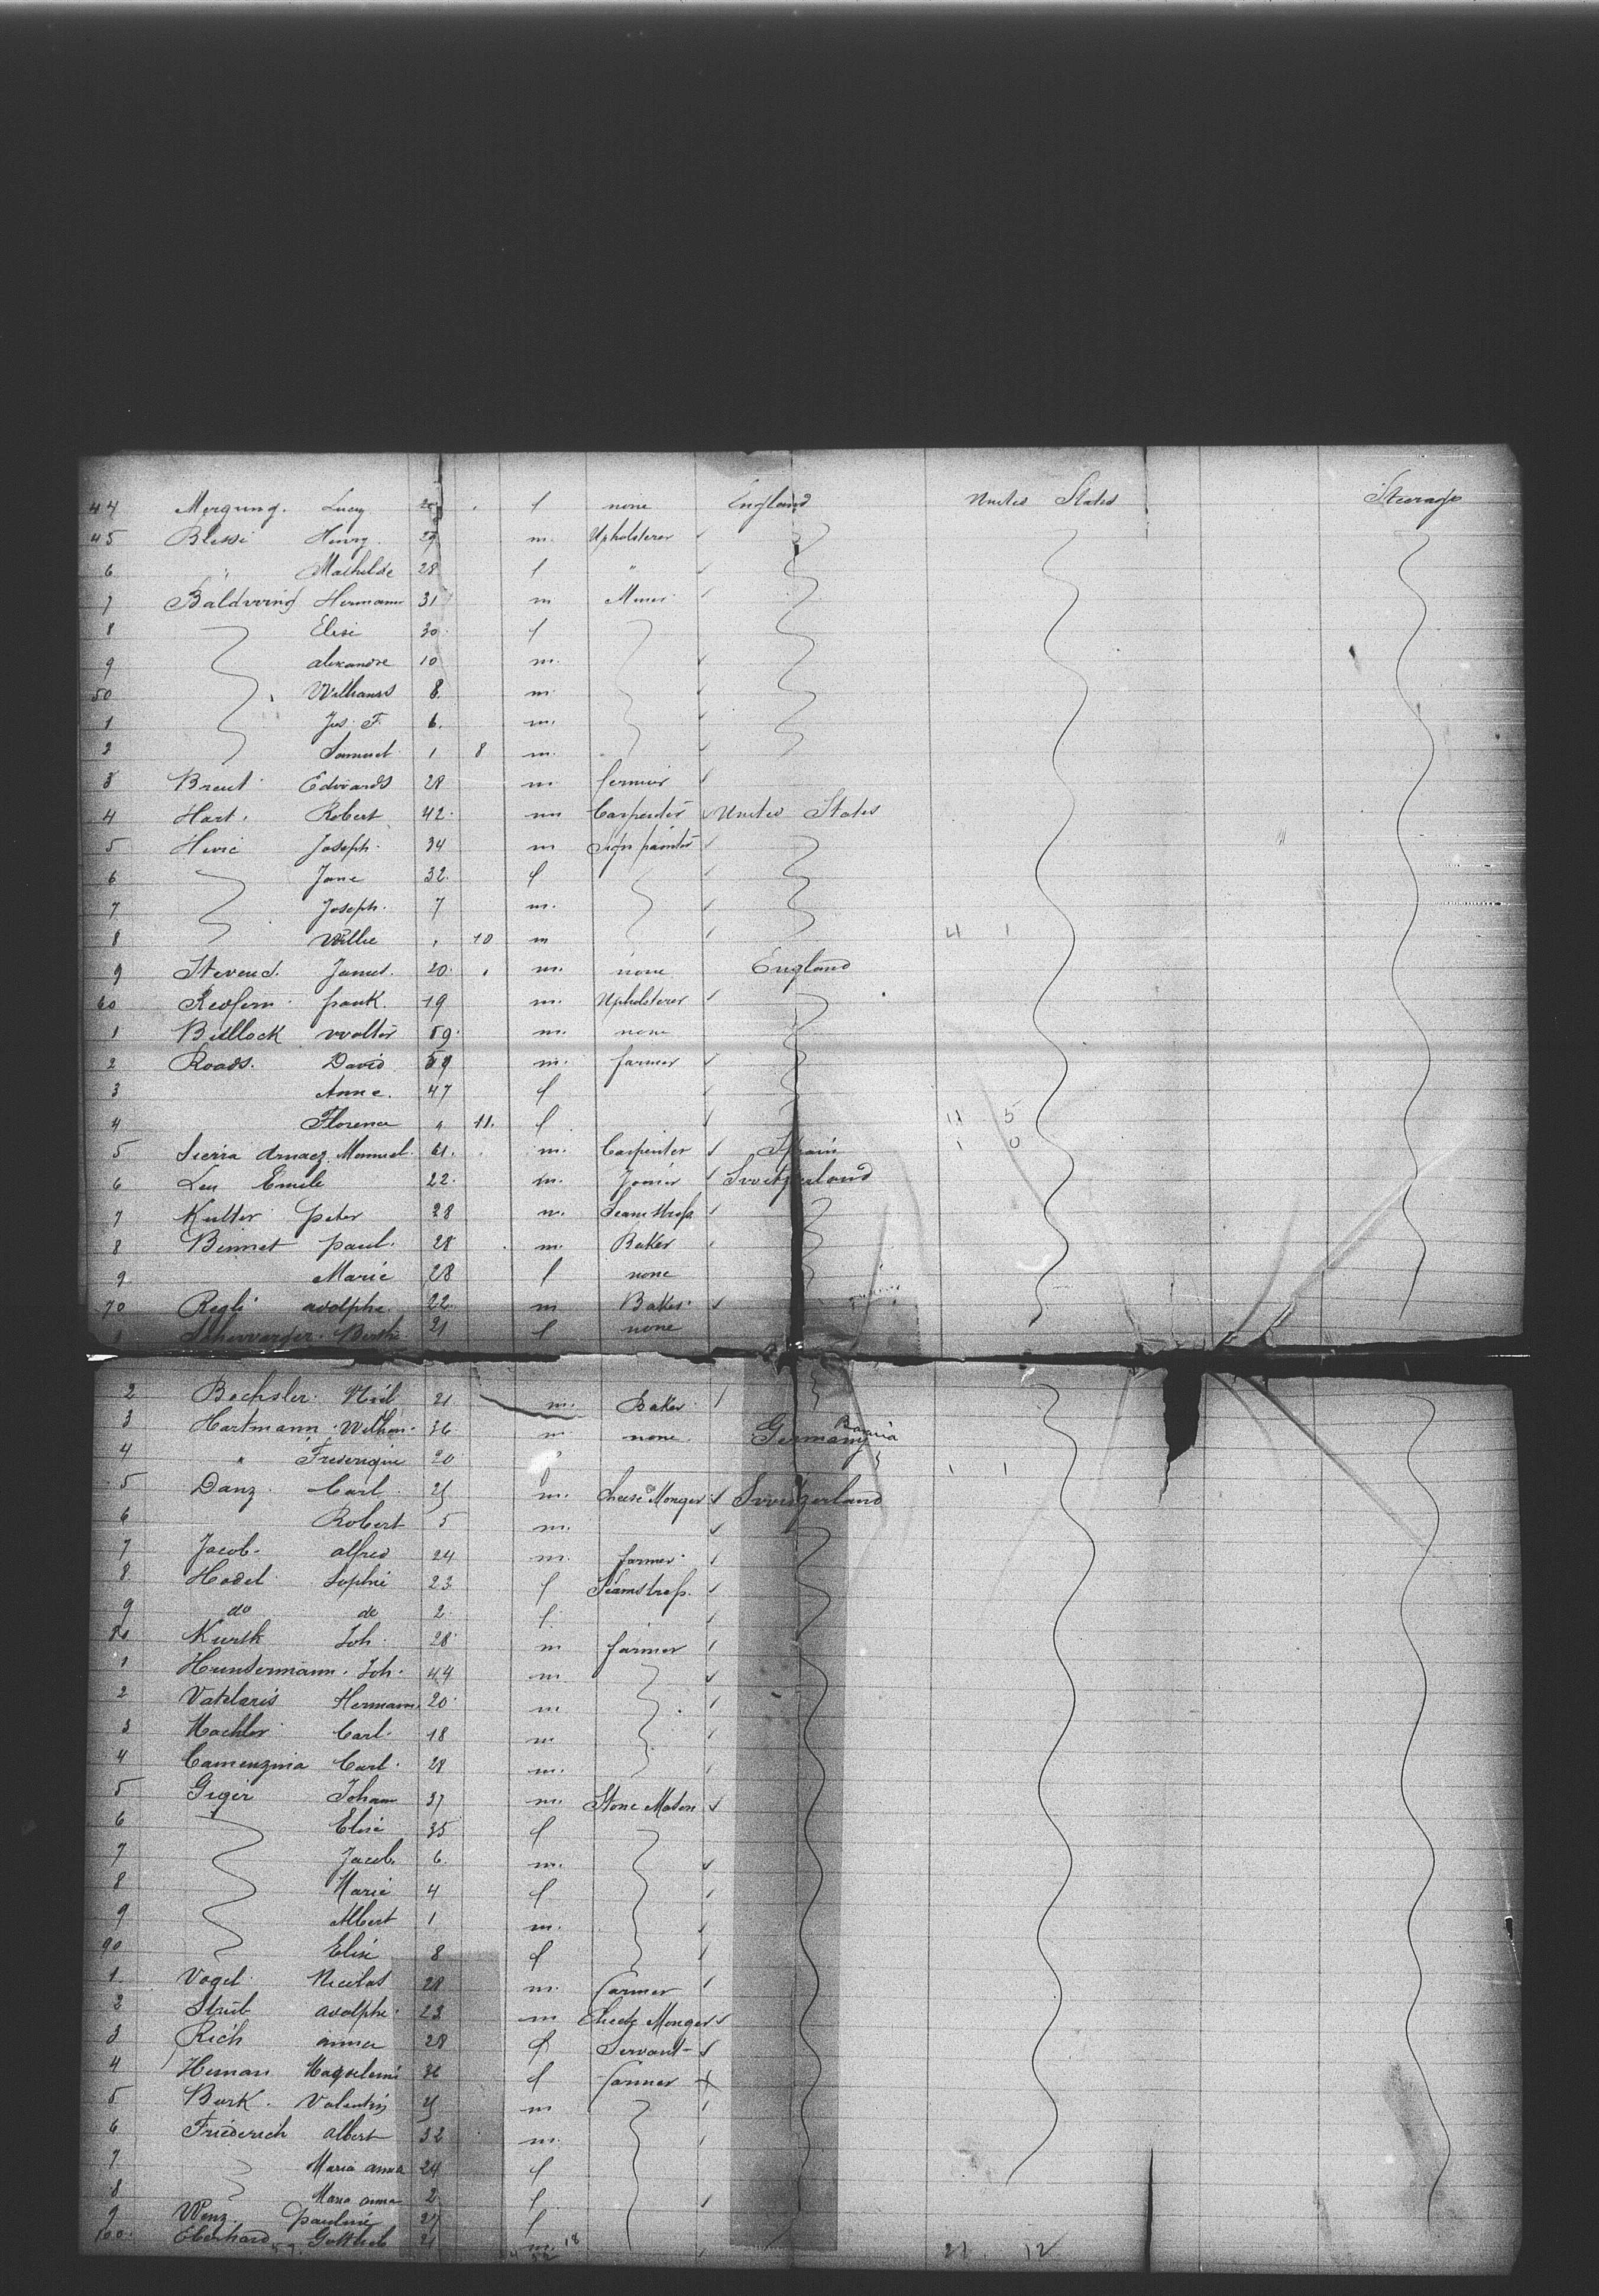 44 Mergung. Lucy f none England United States Steerage
45 Henry. 29 m. Upholsterer
6 " Mathilde 28 f "
7 Baldwing Hermann 31 m Miner
8 Elise 30 f
9 alexandre 10 m.
50 Williams 8 m.
1 Jos. F. 6. m.
2 Samuel 1 8 m.
3 Brent Edwards 28 m fermier
4 Hart. Robert 42. m Carpenter United States
5 Joseph. 34 m Sign painter
6 Jane 32. f
7 Joseph. 7 m.
8 Willie " 10 m 4 1
9 Stevens. James. 20. m. none England
60 Redfern frank 19 m. Upholsterer
1 Bullock walter 59. m. none
2 Roads. David 59 m. farmer
3 Anne. 47 f
4 Florence " 11. f 11 5
5 Sierra Arnaez. Manuel. 61. m. Carpenter Spain 1 0
6 Leu Emile 22. m. Joiner Switzerland
7 Kutter peter 28 m. Seamstress
8 Bennet paul. 28 m. Baker
9 Marie 28 f none
70 Regli adolphe. 22 m Baker
1 21 f none
2 Bechsler. 21 m. Baker
3 Hartmann. 36 m none. Germany Bavaria
4 " Frederique 20 1 1
5 Danz Carl 25 m. Cheese Monger Switzerland
6 Robert 5 m.
7 Jacob. alfred 24 m. farmer
8 Hodel Sophie 23 f Seamstress
9 do do 2 f.
80 Kursk Joh. 28 m farmer
1 Hunsermann. Joh. 44 m
2 Hermann 20 m
3 Machler Carl. 18 m
4 Camenzina Carl. 28 m.
5 Giger Johann 37 m. Stone Mason
6 Elise 35 f
7 Jacob. 6 m.
8 Marie 4 f
9 Albert 1 m.
90 Elise 8 f
1 Vogel Nicolas 28 m. farmer
2 Strub adolphe 23 m Cheese Monger
3 Rich anna 28 f Servant
4 36 f farmer
5 Burk. Valentin 25 m
6 Friederich albert 32 m.
7 Maria anna 24 f
8 Maria anna 2 f
9 Wenz. pauline 27 f
100. Eberhard Gottlieb 21 m. 18
21 12